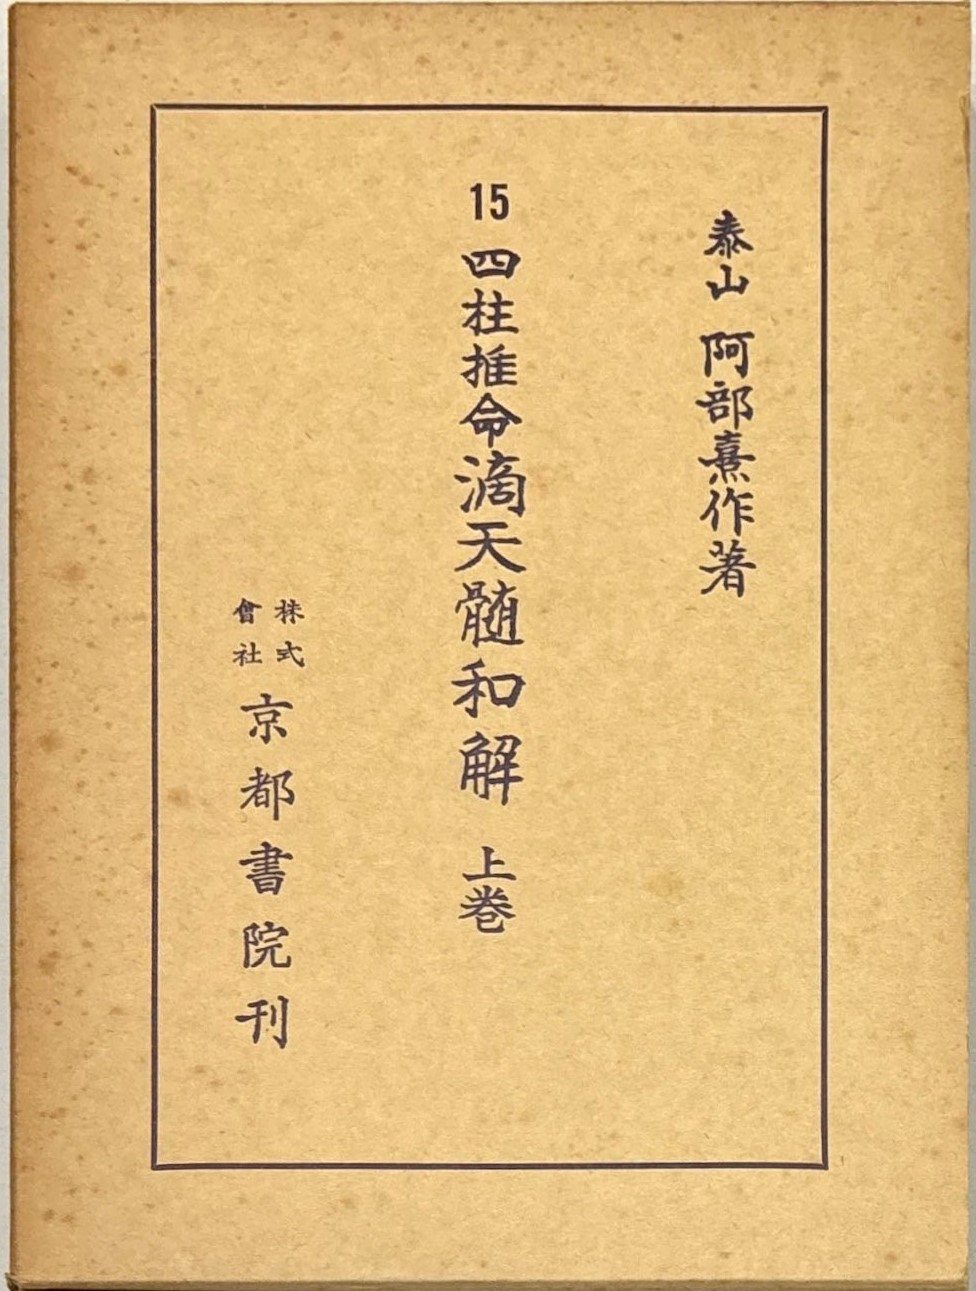 泰山 阿部熹作著
15 四柱推命滴天髄和解 上巻
株式會社 京都書院刊